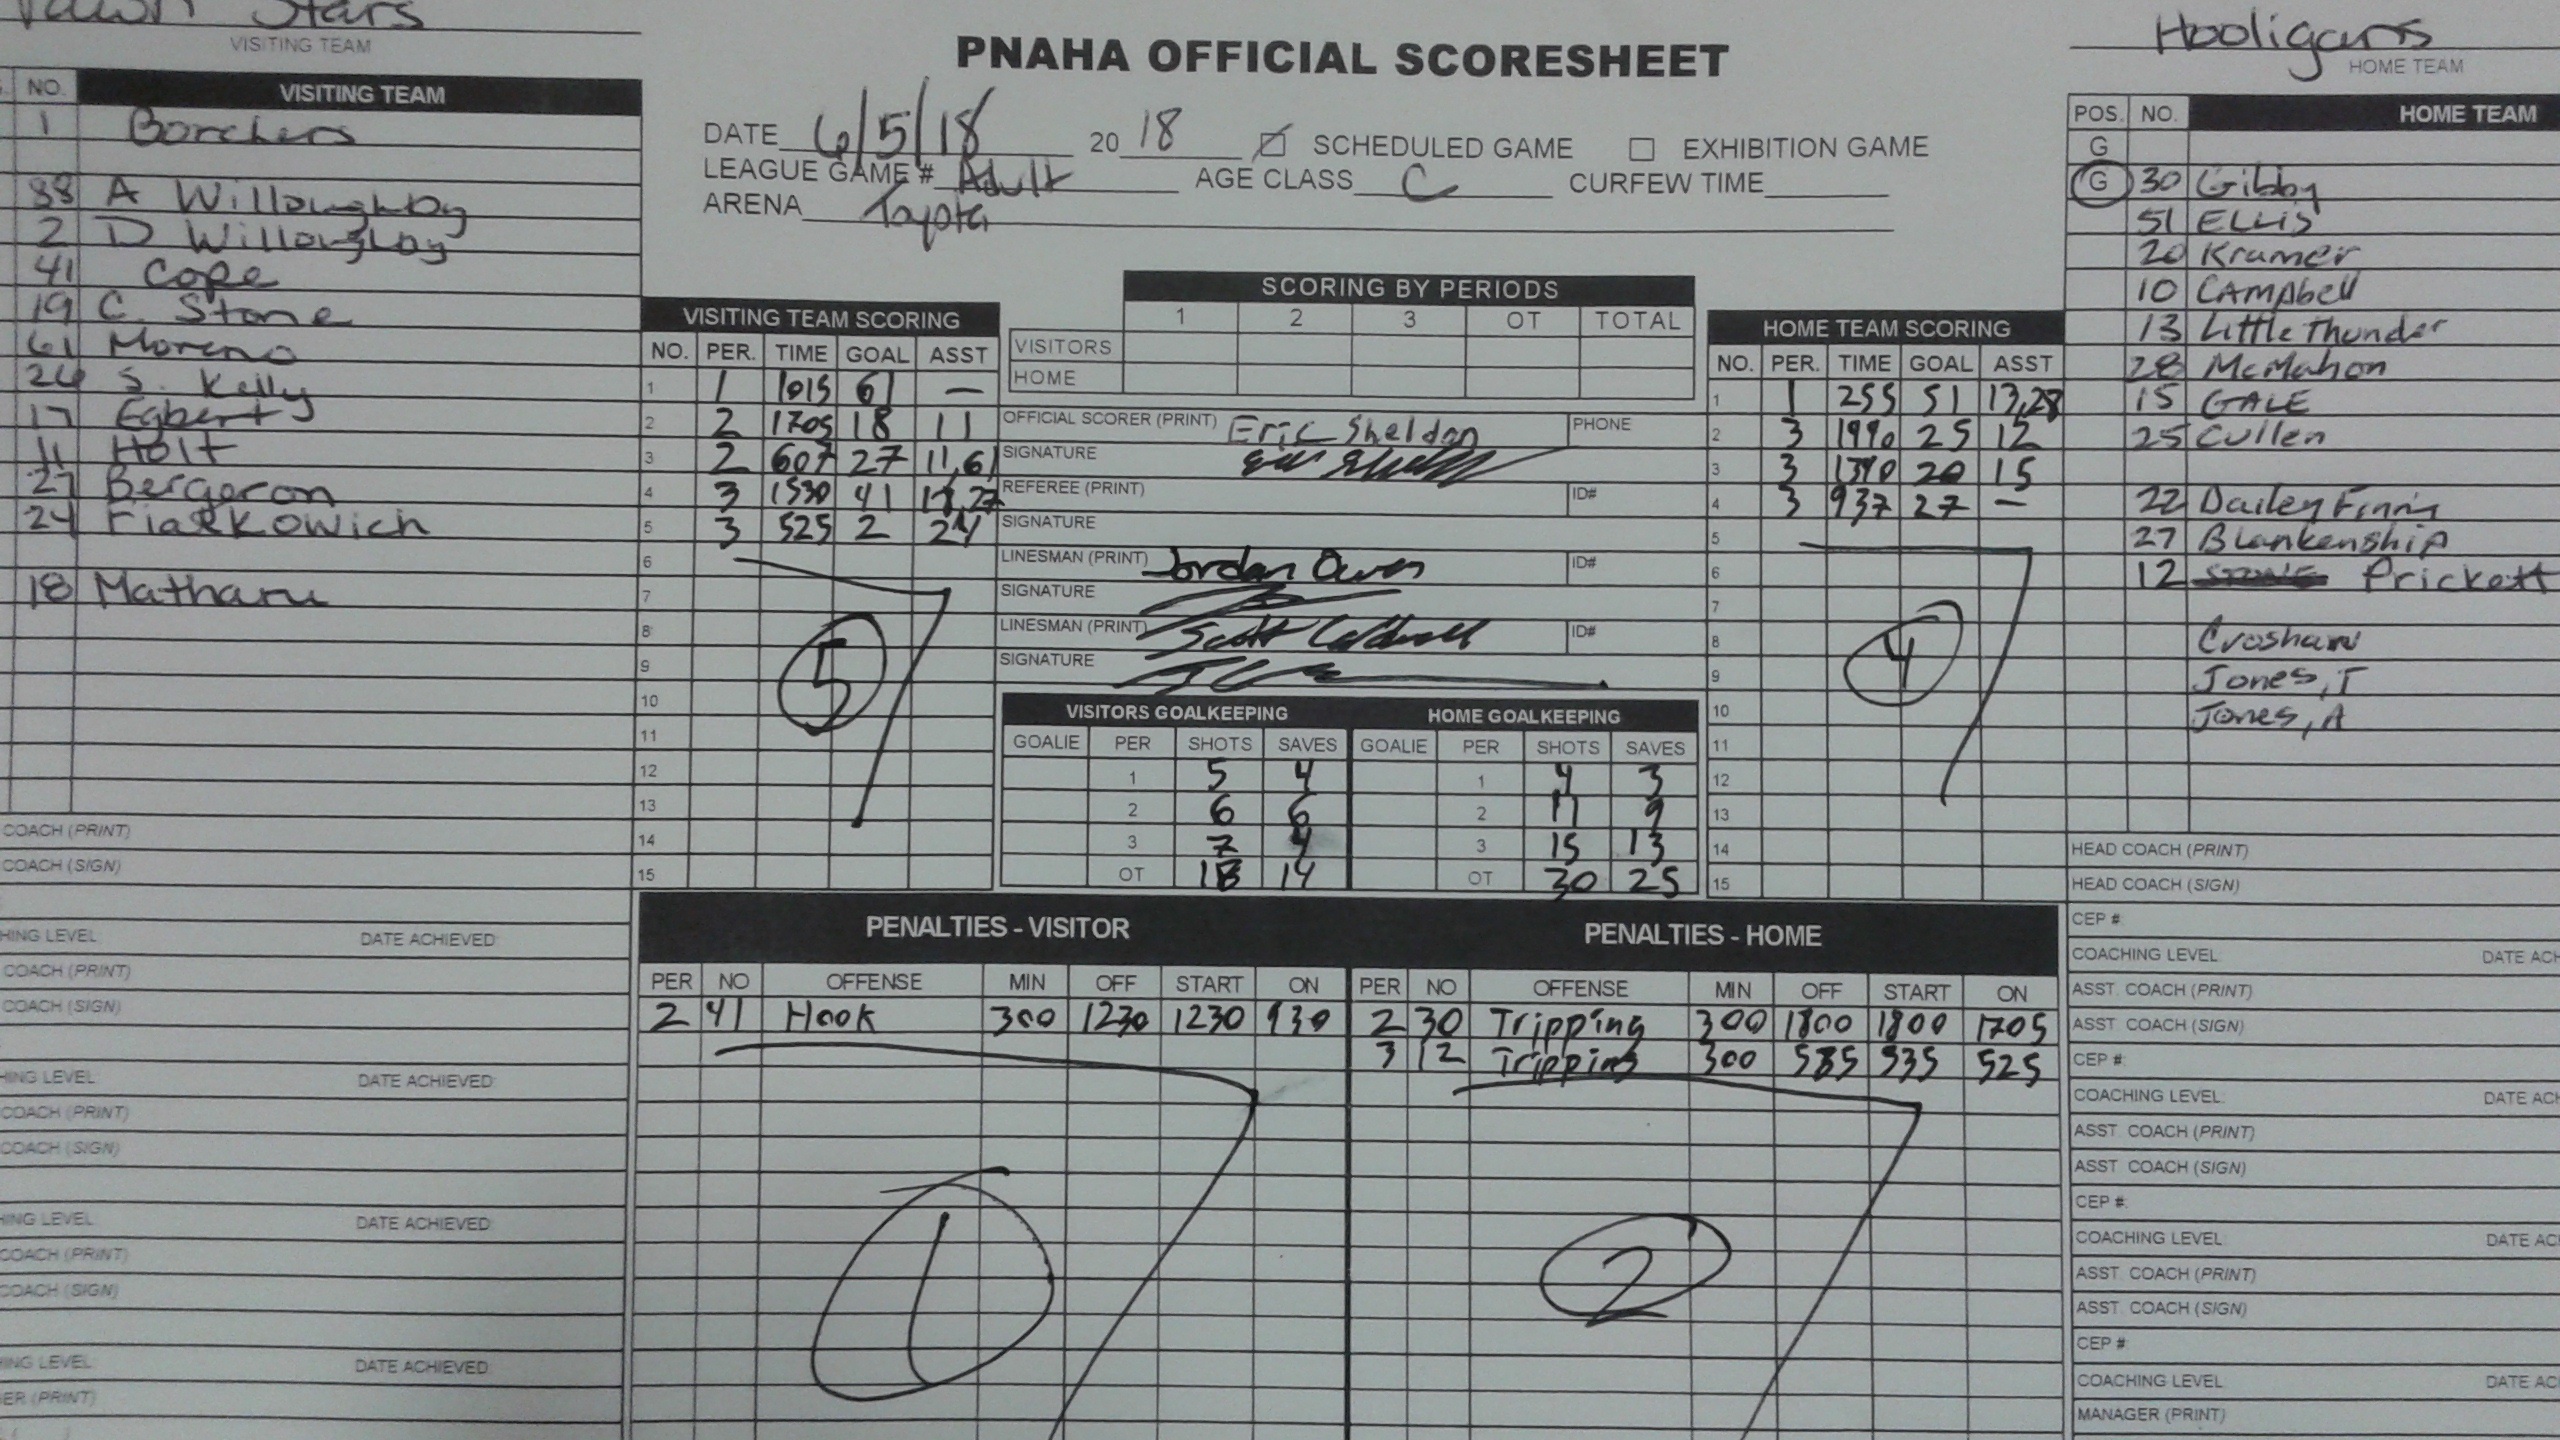 Stars
VISITING TEAM
NO. VISITING TEAM
1 Borchers
88 A Willoughby
2 D Willoughby
41 Cope
19 C. Stone
61 Moreno
26 S. Kelly
17 Egbert
11 Holt
27 Bergeron
24 Fialkowich
18 Matharu
COACH (PRINT)
COACH (SIGN)
HING LEVEL DATE ACHIEVED
COACH (PRINT)
COACH (SIGN)
HING LEVEL DATE ACHIEVED
COACH (PRINT)
COACH (SIGN)
HING LEVEL DATE ACHIEVED
COACH (PRINT)
COACH (SIGN)
HING LEVEL DATE ACHIEVED
ER (PRINT)
PNAHA OFFICIAL SCORESHEET
DATE 6/5/18 20 18 SCHEDULED GAME EXHIBITION GAME
LEAGUE GAME # Adult AGE CLASS C CURFEW TIME
ARENA Toyota
SCORING BY PERIODS
1 2 3 OT TOTAL
VISITORS
HOME
VISITING TEAM SCORING
NO. PER. TIME GOAL ASST
1 1 1015 61 —
2 2 1705 18 11
3 2 607 27 11,61
4 3 1530 41 18,27
5 3 525 2 24
6
7
8
9
10
11
12
13
14
15
5
OFFICIAL SCORER (PRINT) Eric Sheldon PHONE
SIGNATURE
REFEREE (PRINT) ID#
SIGNATURE
LINESMAN (PRINT) Jordan Owen ID#
SIGNATURE
LINESMAN (PRINT) Scott Caldwell ID#
SIGNATURE
VISITORS GOALKEEPING
GOALIE PER SHOTS SAVES
1 5 4
2 6 6
3 7 4
OT 18 14
HOME GOALKEEPING
GOALIE PER SHOTS SAVES
1 4 3
2 11 9
3 15 13
OT 30 25
HOME TEAM SCORING
NO. PER. TIME GOAL ASST
1 1 255 51 13,28
2 3 1990 25 12
3 3 1390 20 15
4 3 937 27 —
5
6
7
8
9
10
11
12
13
14
15
4
PENALTIES - VISITOR
PER NO OFFENSE MIN OFF START ON
2 41 Hook 300 1230 1230 930
1
PENALTIES - HOME
PER NO OFFENSE MIN OFF START ON
2 30 Tripping 300 1800 1800 1705
3 12 Tripping 300 585 535 525
2
Hooligans
HOME TEAM
POS. NO. HOME TEAM
G
G 30 Gibby
51 ELLIS
20 Kramer
10 CAMpbell
13 Little Thunder
28 McMahon
15 GALE
25 Cullen
22 Dailey Finn
27 Blankenship
12 Prickett
Croshaw
Jones, T
Jones, A
HEAD COACH (PRINT)
HEAD COACH (SIGN)
CEP #:
COACHING LEVEL DATE ACH
ASST. COACH (PRINT)
ASST. COACH (SIGN)
CEP #:
COACHING LEVEL: DATE ACH
ASST. COACH (PRINT)
ASST. COACH (SIGN)
CEP #:
COACHING LEVEL: DATE AC
ASST. COACH (PRINT)
ASST. COACH (SIGN)
CEP #:
COACHING LEVEL DATE AC
MANAGER (PRINT)